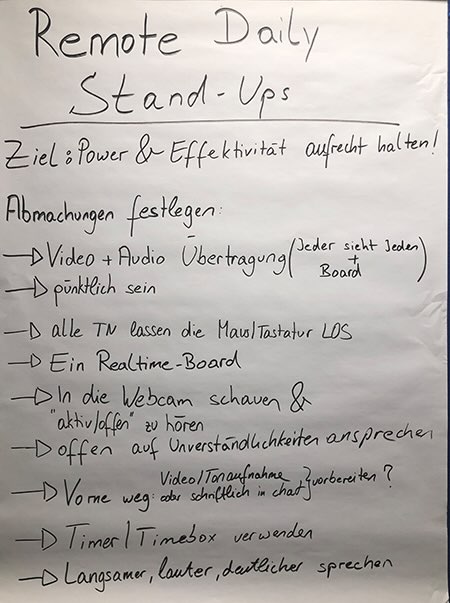 Remote Daily
Stand-Ups
Ziel: Power & Effektivität aufrecht halten!
Abmachungen festlegen:
→ Video + Audio Übertragung (Jeder sieht Jeden
+
Board)
→ pünktlich sein
→ alle TN lassen die Maus/Tastatur LOS
→ Ein Realtime-Board
→ In die Webcam schauen &
"aktiv/offen" zu hören
→ offen auf Unverständlichkeiten ansprechen
→ Vorne weg: Video/Tonaufnahme
oder schriftlich in chat } vorbereiten?
→ Timer/Timebox verwenden
→ Langsamer, lauter, deutlicher sprechen